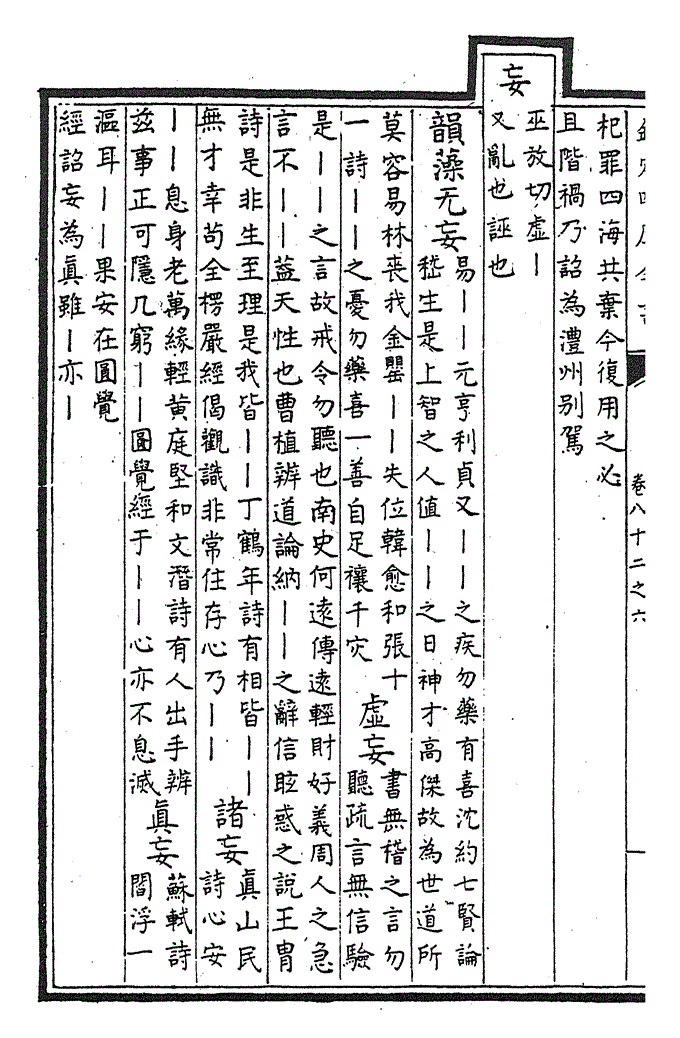 卷八十二之六
杞罪四海共棄今復用之必
且階禍乃詔為澧州别駕
妄
巫放切虛丨
又亂也誣也
韻藻无妄
易丨丨元亨利貞又丨丨之疾勿藥有喜沈約七賢論
嵇生是上智之人值丨丨之日神才高傑故為世道所
莫容易林喪我金罌丨丨失位韓愈和張十
一詩丨丨之憂勿藥喜一善自足禳千灾
虛妄
書無稽之言勿
聽疏言無信驗
是丨丨之言故戒令勿聽也南史何遠傳遠輕財好義周人之急
言不丨丨葢天性也曹植辨道論納丨丨之辭信眩惑之說王胄
詩是非生至理是我皆丨丨丁鶴年詩有相皆丨丨
無才幸苟全楞嚴經偈觀識非常住存心乃丨丨
諸妄
眞山民
詩心安
丨丨息身老萬緣輕黄庭堅和文潛詩有人出手辨
兹事正可隱几窮丨丨圓覺經于丨丨心亦不息滅
眞妄
蘇軾詩
閻浮一
漚耳丨丨果安在圓覺
經詔妄為眞雖丨亦丨